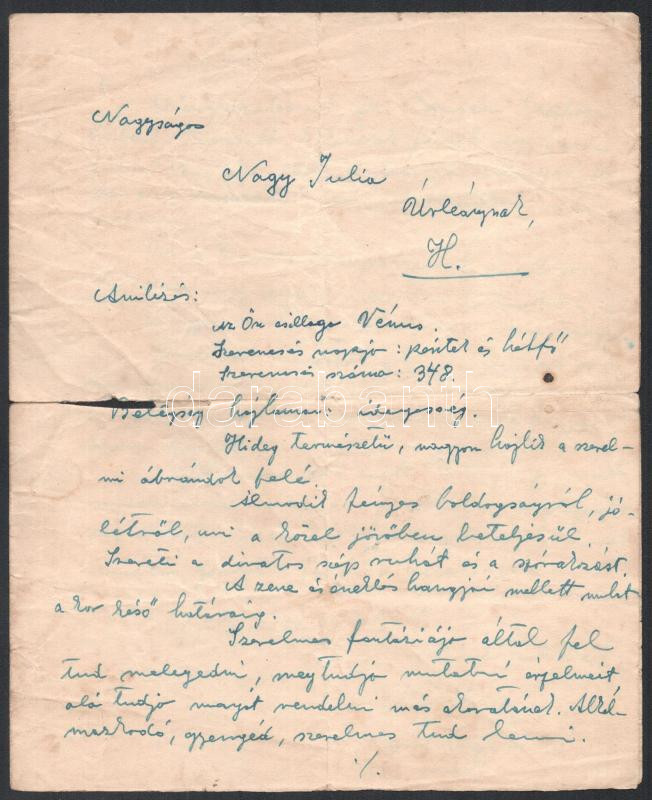 Nagyságos
Nagy Julia
Úrleánynak,
H.
Anilízés:
Az Ön csillaga Vénus.
Szerencsés napja: péntek és hétfő
Szerencsés száma: 348.
darabanth
Betegségi hajlamai: idegesség.
Hideg természetű, nagyon hajlik a szerel-
mi ábrándok felé.
Álmodik fényes boldogságról, jó-
létről, ami a közel jövőben beteljesül.
Szereti a divatos szép ruhát és a szórakozást.
A zene és éneklés hangjai mellett mulat
a kor késő határáig.
Szerelmes fantáziája által fel
tud melegedni, meg tudja mutatni érzelmeit
alá tudja magát rendelni más akaratának. Alkal-
mazkodó, gyengéd, szerelmes tud lenni.
./.